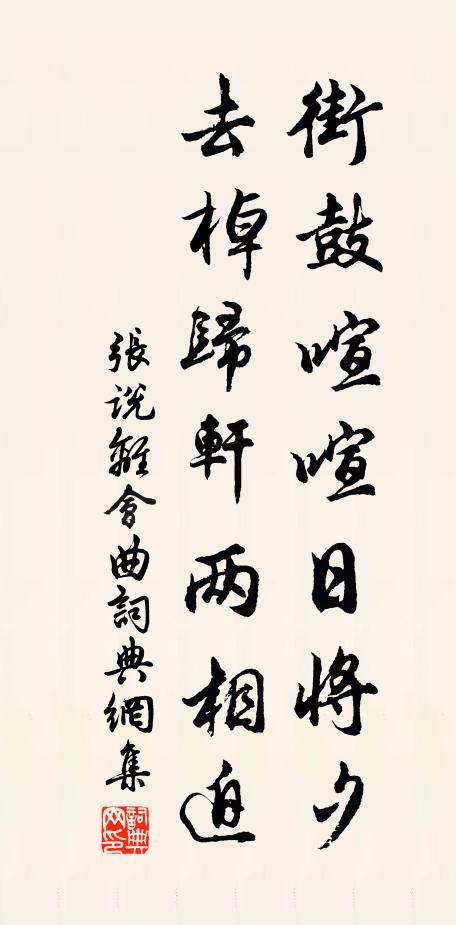 街鼓喧喧日將夕
去棹歸軒两相迫
張説離會曲詞典網集
詞典网印